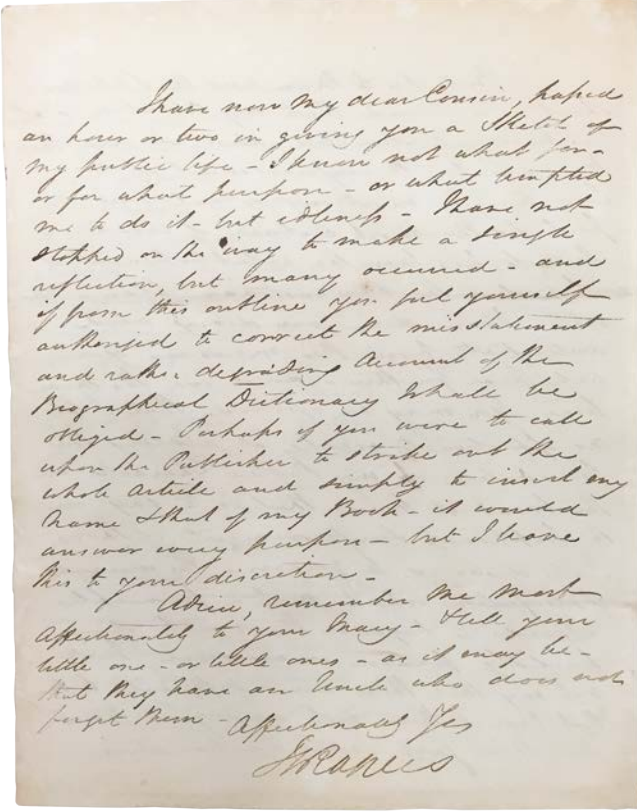 I have now my dear Cousin, passed
an hour or two in giving you a Sketch of
my public life - I know not what for -
or for what purpose - or what tempted
me to do it - but idleness - I have not
stopped on the way to make a single
reflection, but many occurred - and
if from this outline you feel yourself
authorized to correct the misstatement
and rather degrading Account of the
Biographical Dictionary I shall be
obliged - Perhaps if you were to call
upon the Publisher to strike out the
whole article and simply to insert my
name & that of my Book - it would
answer every purpose - but I leave
this to your discretion -
Adieu, remember me most
affectionately to your Mary - & tell your
little one - or little ones - as it may be -
that they have an Uncle who does not
forget them - Affectionately Yrs